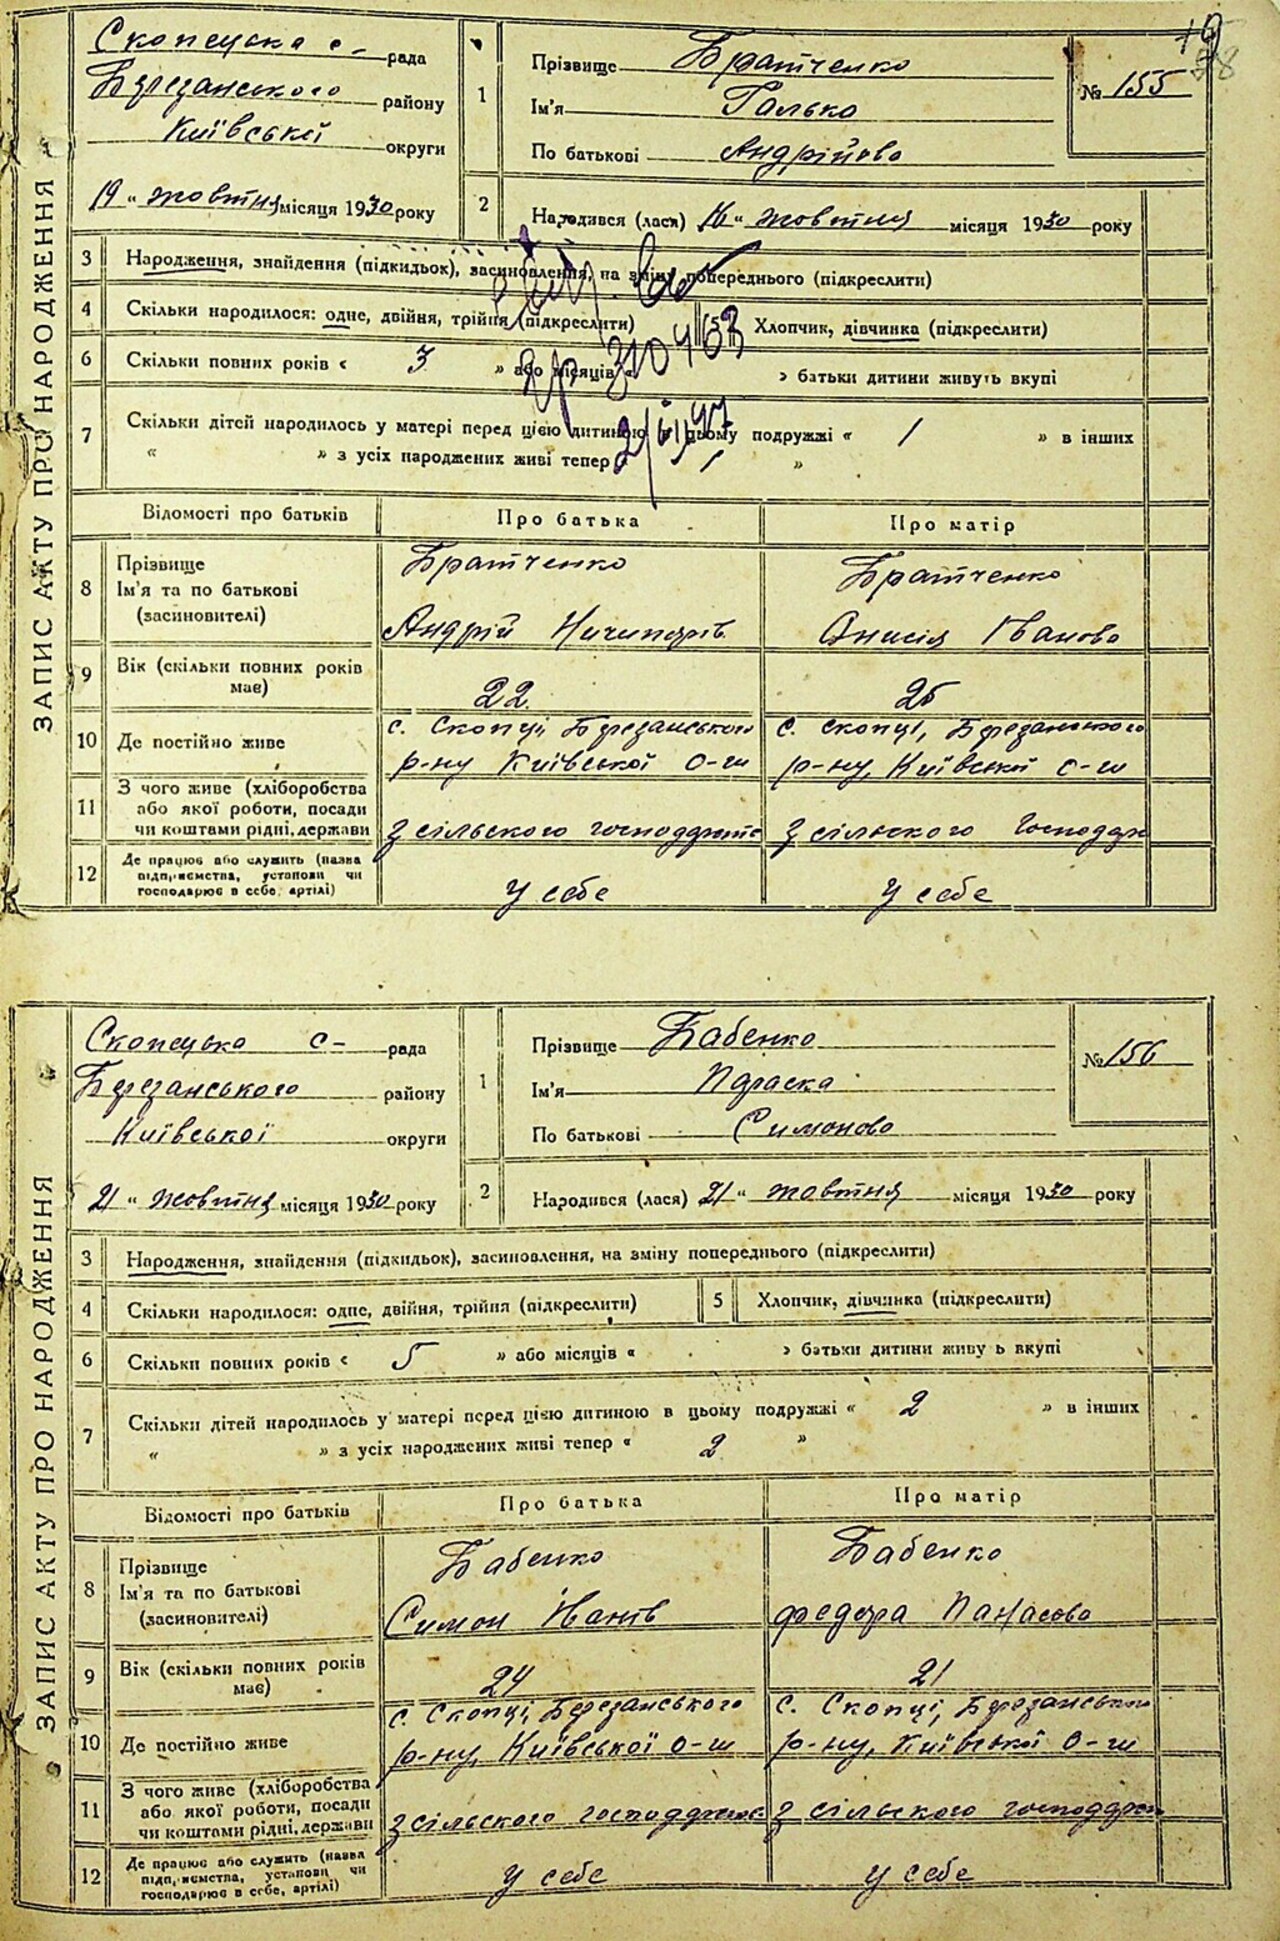 19
58
Скопецька с- рада
Березанського району
Київської округи
"19" жовтня місяця 1930 року
1
Прізвище Братченко
Ім'я Галька
По батькові Андрійова
№ 155
2
Народився (лася) 16 " жовтня місяця 1930 року
3 Народження, знайдення (підкидьок), засиновлення, на зміну попереднього (підкреслити)
4 Скільки народилося: одне, двійня, трійня (підкреслити) 5 Хлопчик, дівчинка (підкреслити)
6 Скільки повних років « 3 » або місяців « » батьки дитини живуть вкупі
7 Скільки дітей народилось у матері перед цією дитиною в цьому подружжі « 1 » в інших
« » з усіх народжених живі тепер « 1 »
Відомості про батьків Про батька Про матір
8 Прізвище Ім'я та по батькові (засиновителі) Братченко Андрій Ничипорів Братченко Онисія Іванова
9 Вік (скільки повних років має) 22 25
10 Де постійно живе с. Скопці, Березанського р-ну Київської о-ги с. Скопці, Березанського р-ну, Київської о-ги
11 З чого живе (хліборобства або якої роботи, посади чи коштами рідні, держави З сільського господарств З сільського господар
12 Де працює або служить (назва підприємства, установи чи господарює в себе, артілі) у себе у себе
ЗАПИС АКТУ ПРО НАРОДЖЕННЯ
Скопецька с- рада
Березанського району
Київської округи
21 " жовтня місяця 1930 року
1
Прізвище Бабенко
Ім'я Параска
По батькові Симонова
№ 156
2
Народився (лася) 21 " жовтня місяця 1930 року
3 Народження, знайдення (підкидьок), засиновлення, на зміну попереднього (підкреслити)
4 Скільки народилося: одне, двійня, трійня (підкреслити) 5 Хлопчик, дівчинка (підкреслити)
6 Скільки повних років « 5 » або місяців « » батьки дитини живу ь вкупі
7 Скільки дітей народилось у матері перед цією дитиною в цьому подружжі « 2 » в інших
« » з усіх народжених живі тепер « 2 »
Відомості про батьків Про батька Про матір
8 Прізвище Ім'я та по батькові (засиновителі) Бабенко Симон Іванів Бабенко Федора Панасова
9 Вік (скільки повних років має) 24 21
10 Де постійно живе с. Скопці, Березанського р-ну, Київської о-ги с. Скопці, Березансько р-ну, Київської о-ги
11 З чого живе (хліборобства або якої роботи, посади чи коштами рідні, держави З сільського господарств З сільського господар
12 Де працює або служить (назва підприємства, установи чи господарює в себе, артілі) у себе у себе
ЗАПИС АКТУ ПРО НАРОДЖЕННЯ